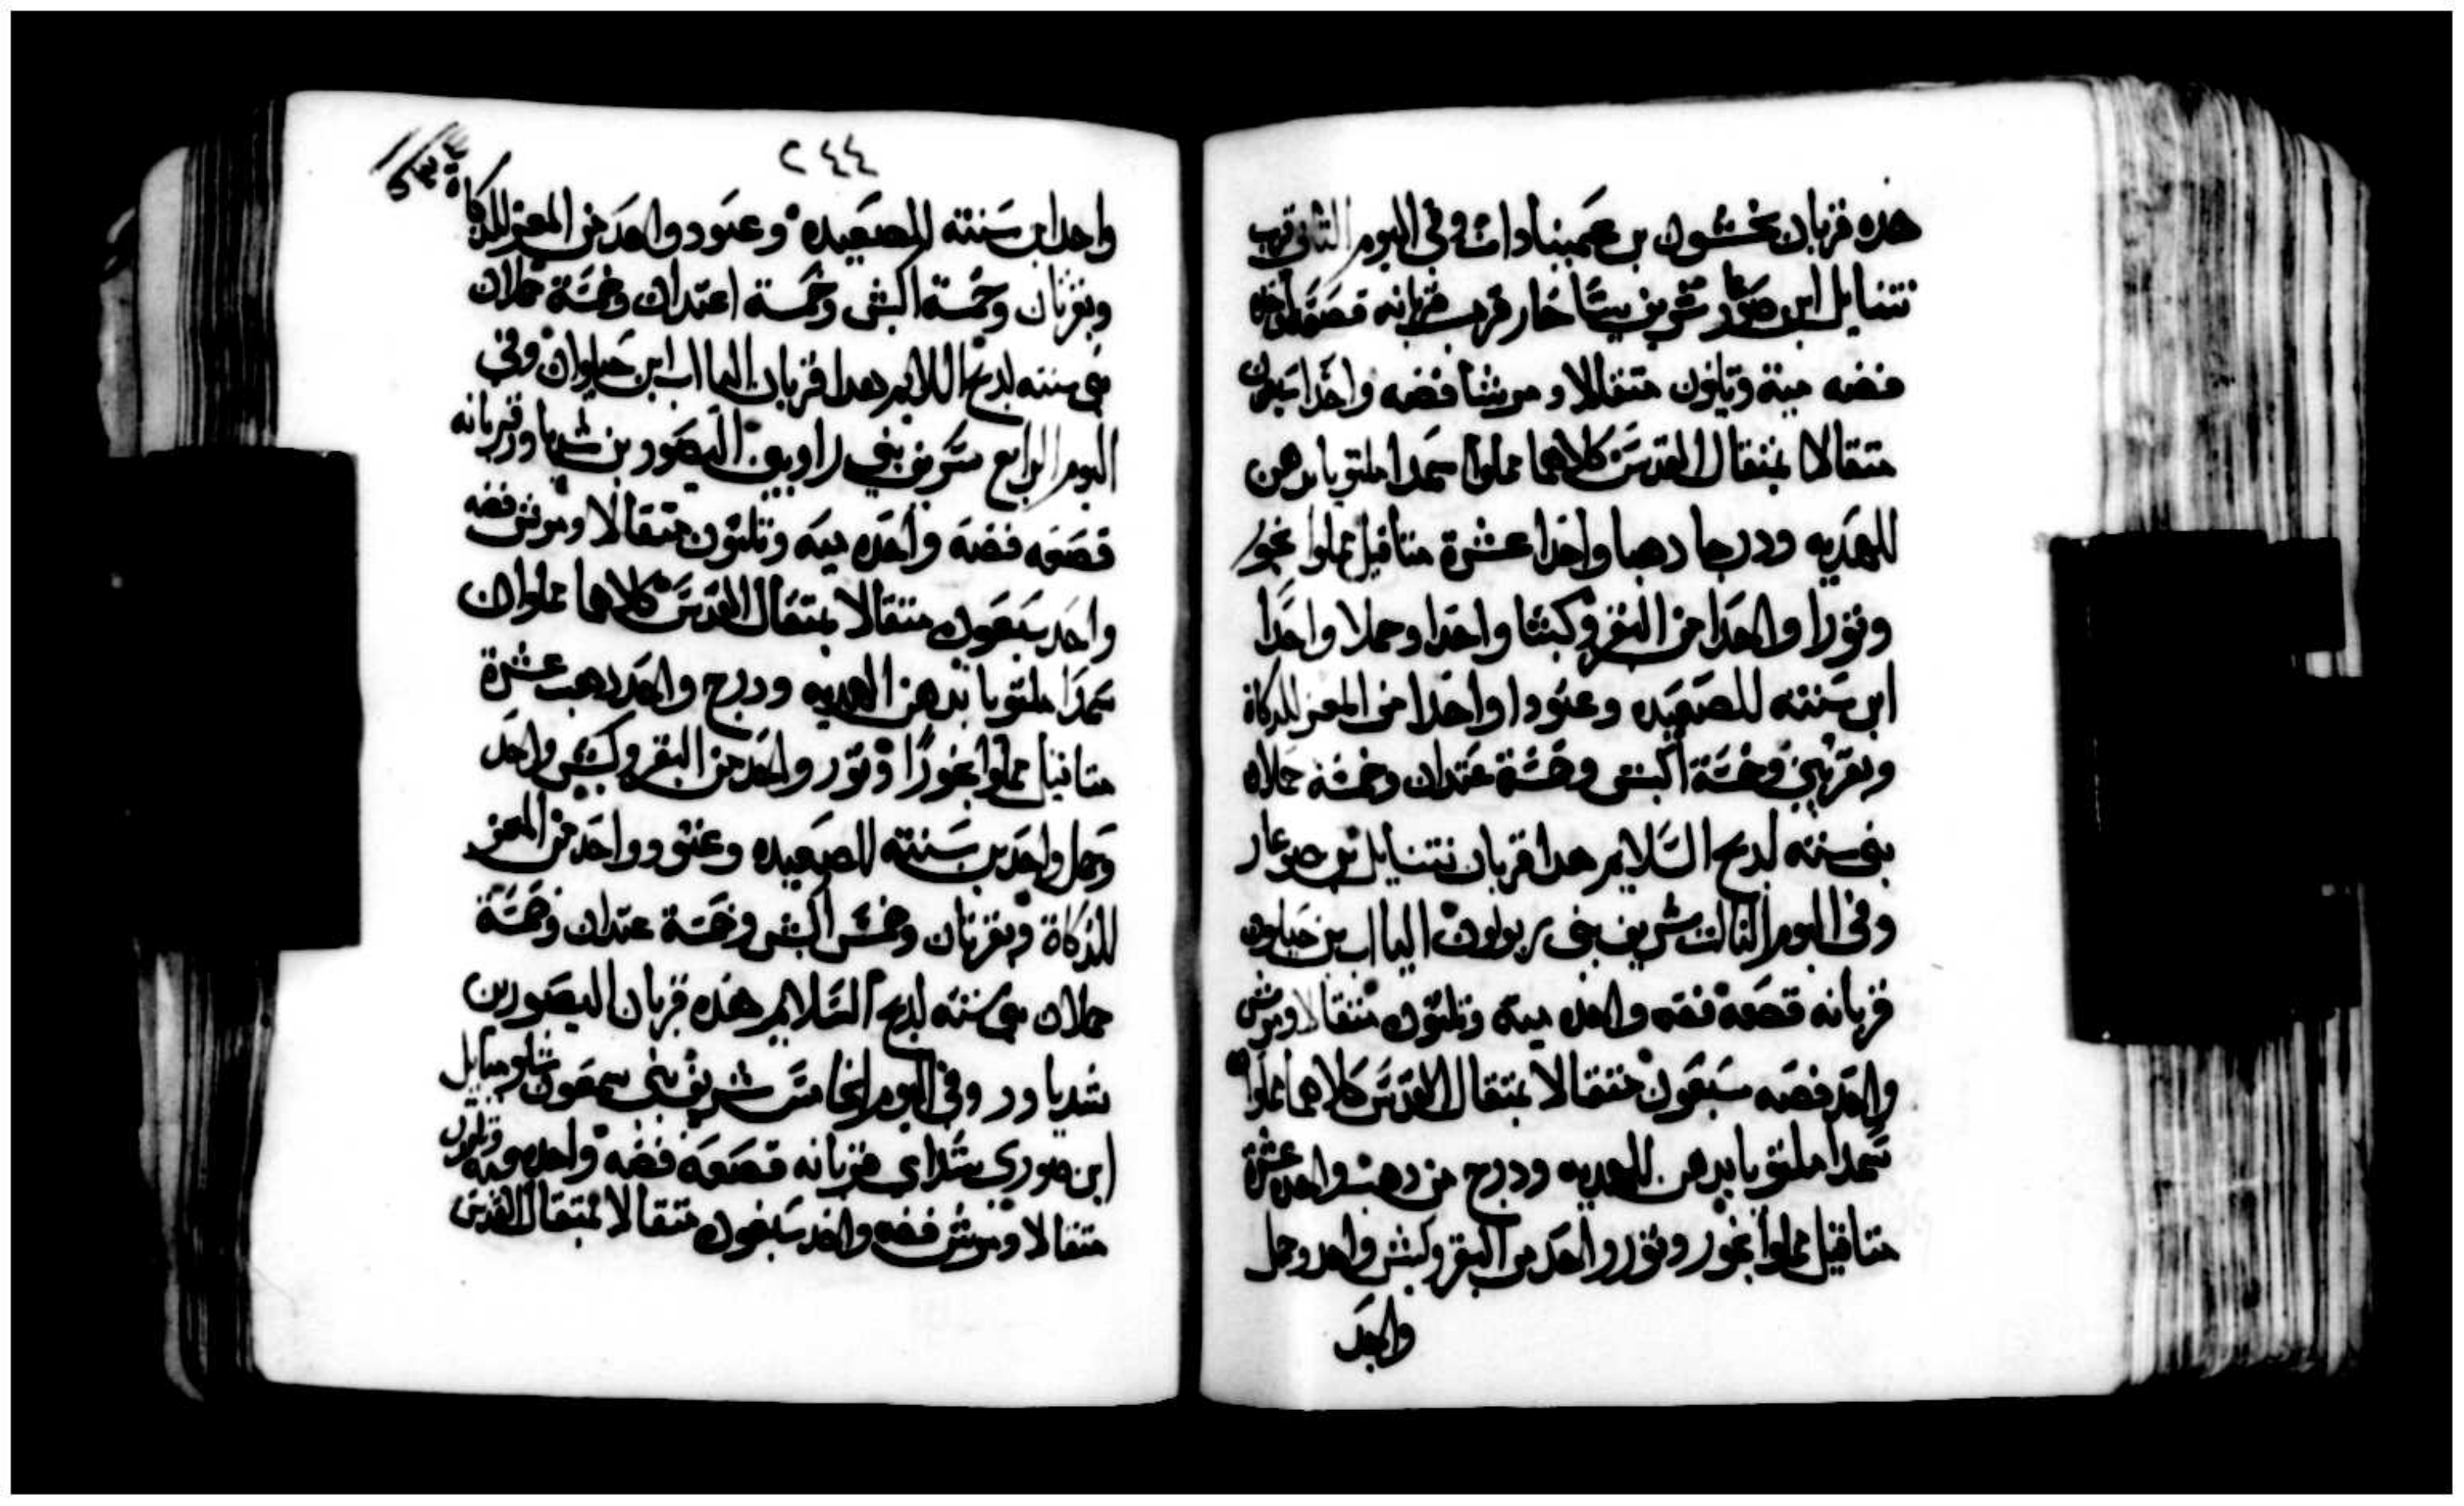 هذه قربان نحشون بن عميناداب وفي اليوم الثاني قرب
نتنايل ابن صوعر شريف يساخار قرب قربانه قصعه واحده
فضه مية وتلتون متقالا ومرشا فضه واحدا سبعون
متقالا بمتقال القدس كلاهما مملوا سمدا ملتويا بدهن
للهديه ودرجا دهبا واحدا عشرة متاقيل مملوا بخور
وتورا واحدا من البقر وكبشا واحدا وحملا واحدا
ابن سنته للصعيده وعتودا واحدا من المعز للدكاة
وبقرتين وخمسة اكبش وخمسة عتدان وخمسة حملان
بني سنته لدبح السلايم هدا قربان نتنايل بن صوعار
وفي اليوم التالت شريف بني زبولون اليااب بن حيلون
قربانه قصعة فضه واحده مية وتلتون متقالا ومرش
واحد فضه سبعون متقالا بمتقال القدس كلاهما مملوا
سمدا ملتويا بدهن للهديه ودرج من دهب واحد عشرة
متاقيل مملوا بخور وتور واحد من البقر وكبش واحد وحمل
واحد
٢٤٤
واحد ابن سنته للصعيده وعتود واحد من المعز للدكاة
وبقرتان وخمسة اكبش وخمسة اعتدان وخمسة حملان
بني سنته لدبح السلايم هدا قربان الياب ابن حيلوان وفي
اليوم الرابع شريف بني راوبين اليصور بن شدياور قربانه
قصعه فضة واحده ميه وتلتون متقالا ومرش فضه
واحد سبعون متقالا بمتقال القدس كلاهما مملوان
سمدا ملتويا بدهن الهديه ودرج واحد دهب عشرة
متاقيل مملوا بخورا وتور واحد من البقر وكبش واحد
وحمل واحد بن سنته للصعيده وعتود واحد من المعز
للدكاة وبقرتان وخمس اكبش وخمسة عتدان وخمسة
حملان بني سنته لدبح السلايم هذه قربان اليصور بن
شدياور وفي اليوم الخامس شريف بني سمعون شلوميايل
ابن صوري شداي قربانه قصعة فضه واحده ميه وتلتون
متقالا ومرش فضه واحد سبعون متقالا بمتقال القدس